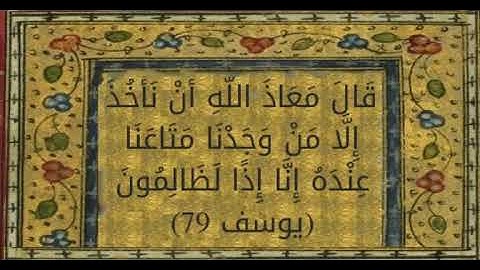 قَالَ مَعَاذَ اللَّهِ أَنْ نَأْخُذَ
إِلَّا مَنْ وَجَدْنَا مَتَاعَنَا
عِنْدَهُ إِنَّا إِذًا لَظَالِمُونَ
(يوسف 79)